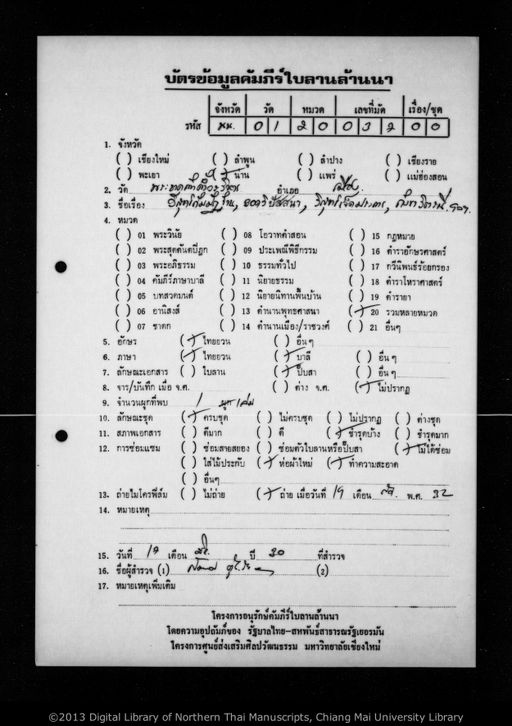 บัตรข้อมูลคัมภีร์ใบลานล้านนา
จังหวัด วัด หมวด เลขที่มัด เรื่อง/ชุด
รหัส นน. 0 1 2 0 0 3 2 0 0
1. จังหวัด
( ) เชียงใหม่ ( ) ลำพูน ( ) ลำปาง ( ) เชียงราย
( ) พะเยา (/) น่าน ( ) แพร่ ( ) แม่ฮ่องสอน
2. วัด อำเภอ เมือง
3. ชื่อเรื่อง
4. หมวด
( ) 01 พระวินัย ( ) 08 โอวาทคำสอน ( ) 15 กฎหมาย
( ) 02 พระสุตตันตปิฎก ( ) 09 ประเพณีพิธีกรรม ( ) 16 ตำราอักษรศาสตร์
( ) 03 พระอภิธรรม ( ) 10 ธรรมทั่วไป ( ) 17 กวีนิพนธ์ร้อยกรอง
( ) 04 คัมภีร์ภาษาบาลี ( ) 11 นิยายธรรม ( ) 18 ตำราโหราศาสตร์
( ) 05 บทสวดมนต์ ( ) 12 นิยายนิทานพื้นบ้าน ( ) 19 ตำรายา
( ) 06 อานิสงส์ ( ) 13 ตำนานพุทธศาสนา (/) 20 รวมหลายหมวด
( ) 07 ชาดก ( ) 14 ตำนานเมือง/ราชวงศ์ ( ) 21 อื่นๆ
5. อักษร (/) ไทยยวน ( ) อื่นๆ
6. ภาษา (/) ไทยยวน (/) บาลี ( ) อื่นๆ
7. ลักษณะเอกสาร ( ) ใบลาน (/) ปั๊บสา ( ) อื่นๆ
8. จาร/บันทึก เมื่อ จ.ศ. ( ) ต่าง จ.ศ. (/) ไม่ปรากฏ
9. จำนวนผูกที่พบ 1 ผูก/เล่ม
10. ลักษณะชุด (/) ครบชุด ( ) ไม่ครบชุด ( ) ไม่ปรากฏ ( ) ต่างชุด
11. สภาพเอกสาร ( ) ดีมาก ( ) ดี (/) ชำรุดบ้าง ( ) ชำรุดมาก
12. การซ่อมแซม ( ) ซ่อมสายสยอง ( ) ซ่อมตัวใบลานหรือปั๊บสา (/) ไม่ได้ซ่อม
( ) ใส่ไม้ประกับ (/) ห่อผ้าใหม่ (/) ทำความสะอาด
( ) อื่นๆ
13. ถ่ายไมโครฟิล์ม ( ) ไม่ถ่าย (/) ถ่าย เมื่อวันที่ 19 เดือน พ.ศ. 32
14. หมายเหตุ
15. วันที่ 19 เดือน ปี 30 ที่สำรวจ
16. ชื่อผู้สำรวจ (1) (2)
17. หมายเหตุเพิ่มเติม
โครงการอนุรักษ์คัมภีร์ใบลานล้านนา
โดยความอุปถัมภ์ของ รัฐบาลไทย-สหพันธ์สาธารณรัฐเยอรมัน
โครงการศูนย์ส่งเสริมศิลปวัฒนธรรม มหาวิทยาลัยเชียงใหม่
©2013 Digital Library of Northern Thai Manuscripts, Chiang Mai University Library